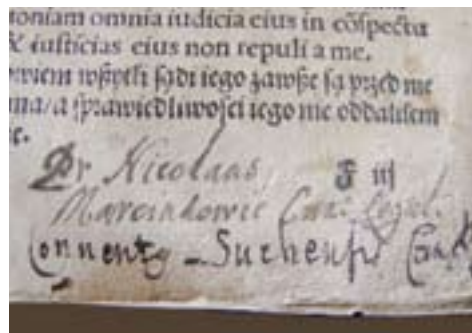 toniam omnia iudicia eius in cõspectu
& iusticias eius non repuli a me.
owiem wßytki sądi iego zawße są przed me
ma/a sprawiedliwości iego nie oddalilem
e.
Pr Nicolaas F iij
Marcinkowic
Conventy - Suchensis